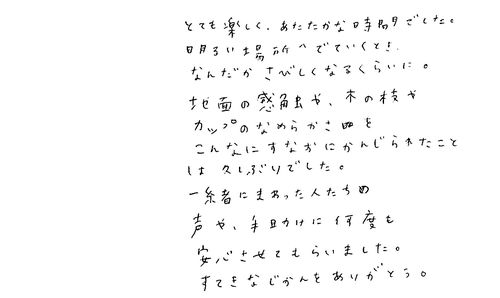 とても楽しく、あたたかな時間でした。
明るい場所へでていくとき、
なんだか さびしくなるくらいに。
地面の感触や、木の枝や
カップのなめらかさを
こんなにすなおにかんじられたこと
は久しぶりでした。
一緒にまわった人たちの
声や、手助けに何度も
安心させてもらいました。
すてきなじかんをありがとう。